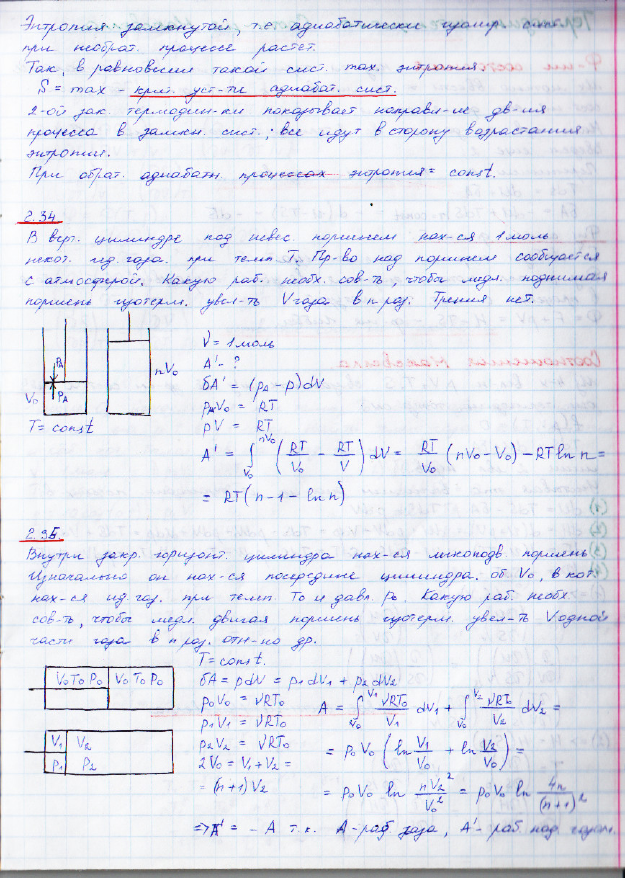 Энтропия замкнутой, т.е. адиабатически изолир. сист.
при необрат. процессе растет.
Так, в равновесии такой сист. max. энтропия
S = max - крит. уст-ти адиабат. сист.
2-ой зак. термодин-ки показывает направл-ие дв-ия
процесса в замкн. сист.; все идут в сторону возрастания
энтропии.
При обрат. адиабатн. процессах энтропия = const.
2.34
В верт. цилиндре под невес. поршнем нах-ся 1 моль
некот. ид. газа. при темп T. Пр-во над поршнем сообщается
с атмосферой. Какую раб. необх. сов-ть, чтобы медл. поднимая
поршень изотерм. увел-ть V газа в n раз. Трения нет.
V0 pA pA nV0
T = const
ν = 1 моль
A' - ?
δA' = (pA - p)dV
pAV0 = RT
pV = RT
A' = ∫V0^nV0 (RT/V0 - RT/V) dV = RT/V0 (nV0 - V0) - RT ln n =
= RT(n-1-ln n)
2.35
Внутри закр. горизонт. цилиндра нах-ся легкоподв поршень
Изначально он нах-ся посередине цилиндра. об V0, в кот.
нах-ся ид. газ. при темп T0 и давл p0. Какую раб. необх.
сов-ть, чтобы медл. двигая поршень изотерм. увел-ть V одной
части газа в n раз. отн-но др.
V0 T0 p0 V0 T0 p0
V1 V2
p1 p2
T = const.
δA = pdV = p1dV1 + p2dV2
p0V0 = νRT0
p1V1 = νRT0
p2V2 = νRT0
2V0 = V1 + V2 =
= (n+1)V2
A = ∫V0^V1 νRT0/V1 dV1 + ∫V0^V2 νRT0/V2 dV2 =
= p0V0 (ln V1/V0 + ln V2/V0) =
= p0V0 ln nV2²/V0² = p0V0 ln 4n/(n+1)²
=> A' = - A т.к. A - раб газа, A' - раб над газом.